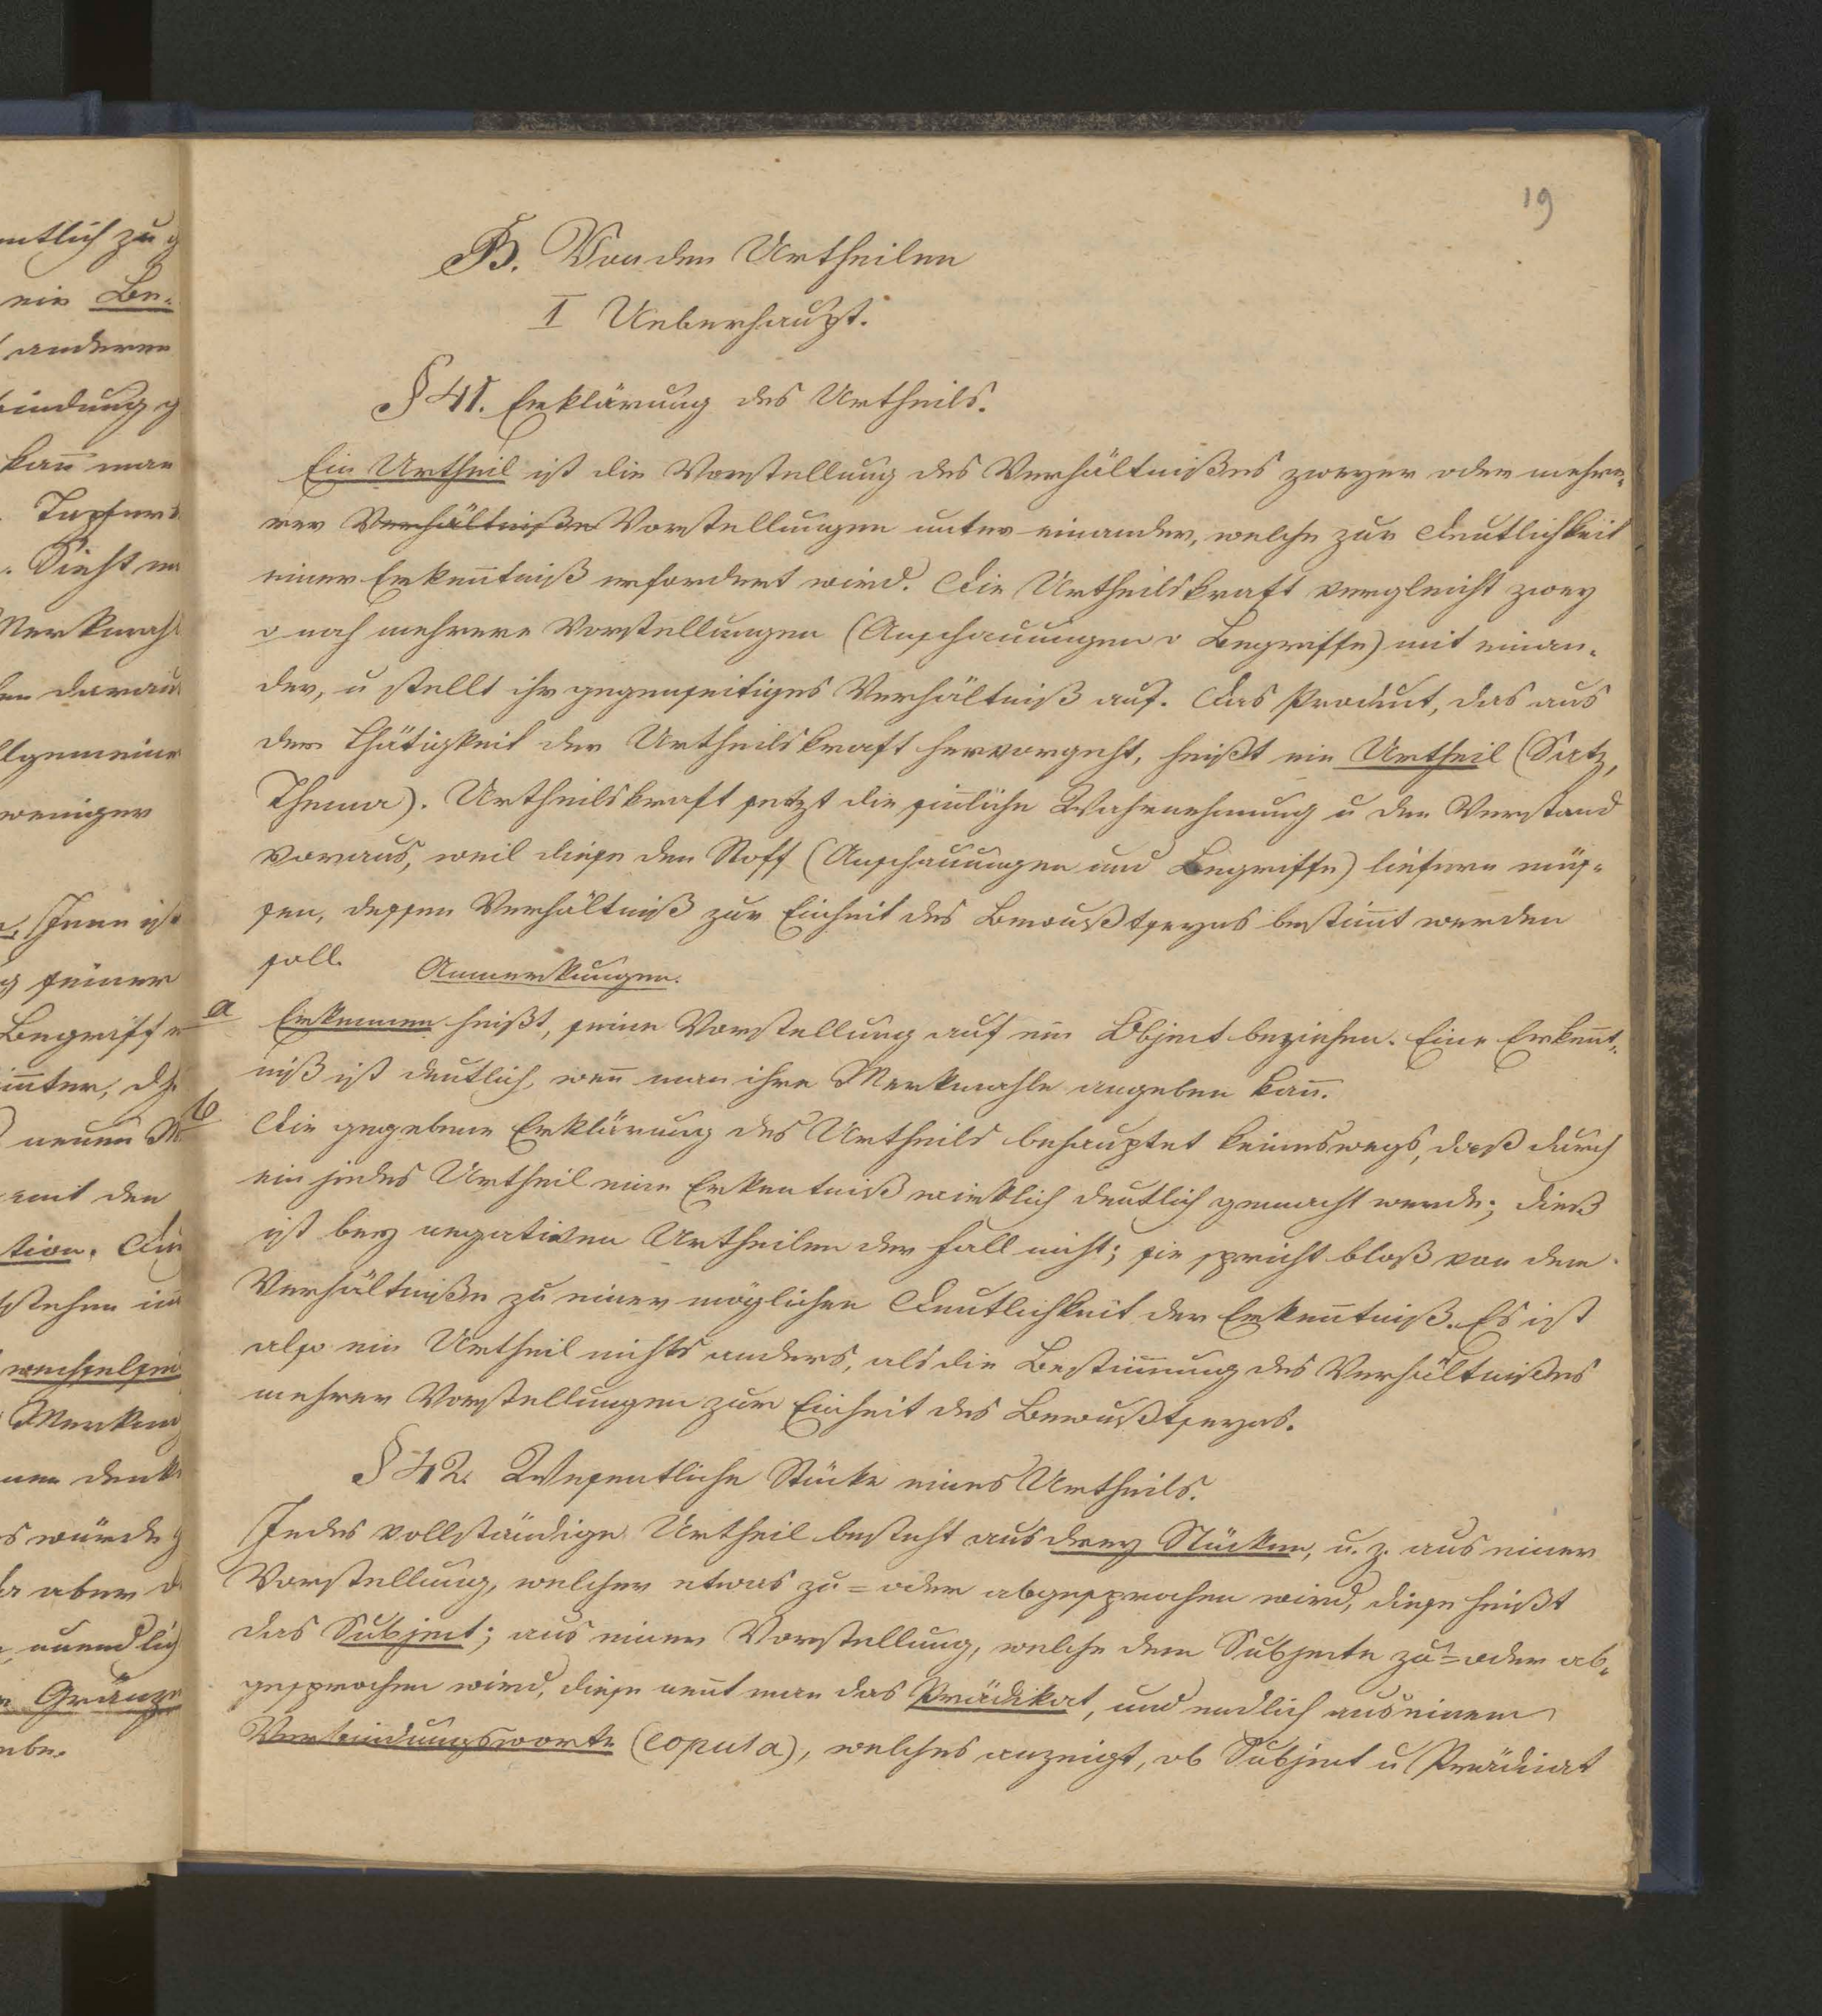 19
B. Von den Urtheilen
I Ueberhaupt.
§ 41. Erklärung des Urtheils.
Ein Urtheil ist die Vorstellung des Verhältnißes zweyer oder mehre-
rer Verhältniße Vorstellungen unter einander, welche zur Deutlichkeit
einer Erkenntniß erfordert wird. Die Urtheilskraft vergleicht zwey
o noch mehrere Vorstellungen (Anschauungen o Begriffe) mit einan-
der, u stellt ihr gegenseitiges Verhältniß auf. Das Product, das aus
der Thätigkeit der Urtheilskraft hervorgeht, heißt ein Urtheil (Satz,
Thema). Urtheilskraft setzt die sinnliche Wahrnehmung u den Verstand
voraus, weil diese den Stoff (Anschauungen und Begriffe) liefern müs-
sen, dessen Verhältniß zur Einheit des Bewußtseyns bestim̄t werden
soll.
Anmerkungen.
a Erkennen heißt, seine Vorstellung auf ein Object beziehen. Eine Erken̄t-
niß ist deutlich, wen̄ man ihre Merkmahle angeben kan̄.
b Die gegebene Erklärung des Urtheils behauptet keineswegs, daß durch
ein jedes Urtheil eine Erkentniß wirklich deutlich gemacht werde; dieß
ist bey negativen Urtheilen der Fall nicht; sie spricht bloß von dem
Verhältniße zu einer möglichen Deutlichkeit der Erken̄tniß. Es ist
also ein Urtheil nichts anders, als die Bestim̄ung des Verhältnißes
mehrer Vorstellungen zur Einheit des Bewußtseyns.
§ 42. Wesentliche Stücke eines Urtheils.
Jedes vollständige Urtheil besteht aus drey Stücken, u. z. aus einer
Vorstellung, welcher etwas zu= oder abgesprochen wird, diese heißt
das Subject; aus einer Vorstellung, welche dem Subjecte zu= oder ab-
gesprochen wird, diese nen̄t man das Prädikat, und endlich aus einem
Verbindungsworte (copula), welches anzeigt, ob Subject u Prädicat